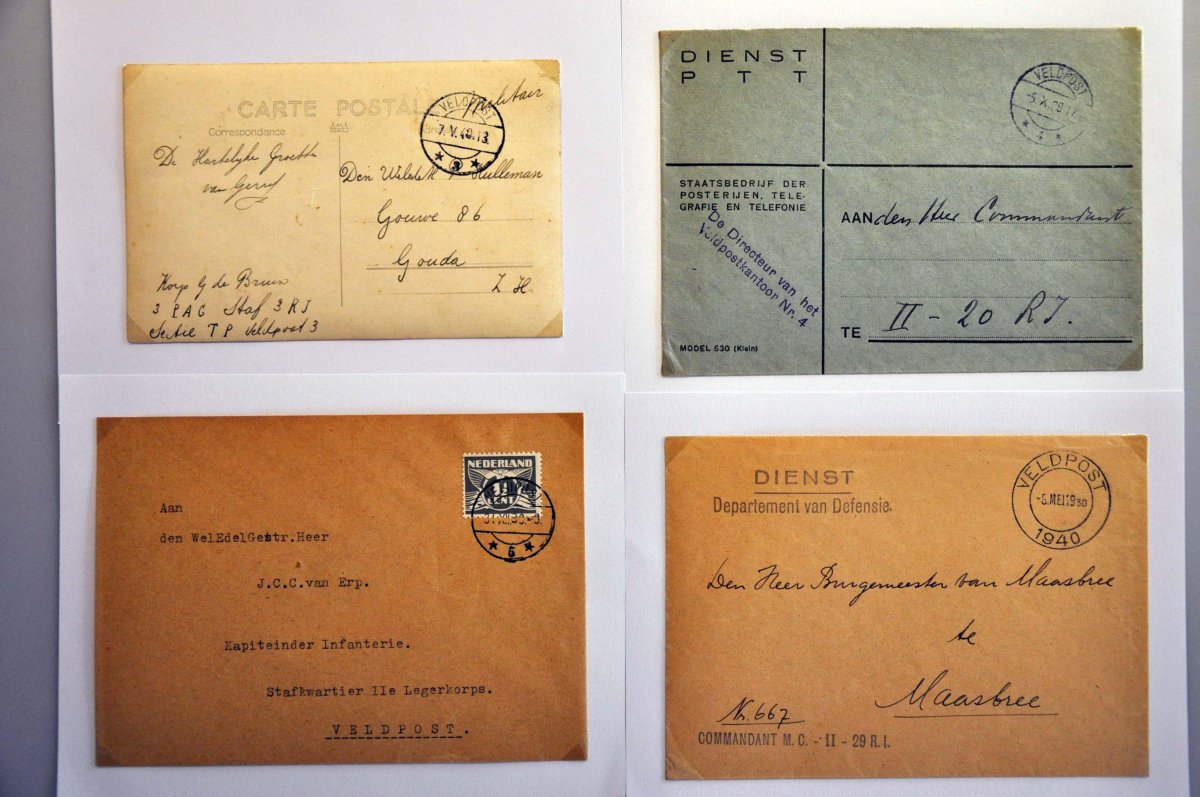 CARTE POSTALE
militair
VELDPOST
7.V.40.13
3
Correspondance
De Hartelyke Groette
van Gerrit
Den Wel
Hulleman
Gouwe 86
Gouda
Z H.
Korp G de Bruin
3 PAG Staf 3 RJ
Sectie TP Veldpost 3
DIENST
PTT
VELDPOST
-5.X.39.17
STAATSBEDRIJF DER
POSTERIJEN, TELE-
GRAFIE EN TELEFONIE
De Directeur van het
Veldpostkantoor Nr. 4
AAN den Heer Commandant
TE II - 20 RJ.
MODEL 530 (Klein)
NEDERLAND
CENT
5
Aan
den WelEdelGestr.Heer
J.C.C.van Erp.
Kapiteinder Infanterie.
Stafkwartier IIe Legerkorps.
VELDPOST.
DIENST
Departement van Defensie.
VELDPOST
-6.MEI1930
1940
Den Heer Burgemeester van Maasbree
te
Maasbree
Nr. 667
COMMANDANT M.C. - II - 29 R.I.